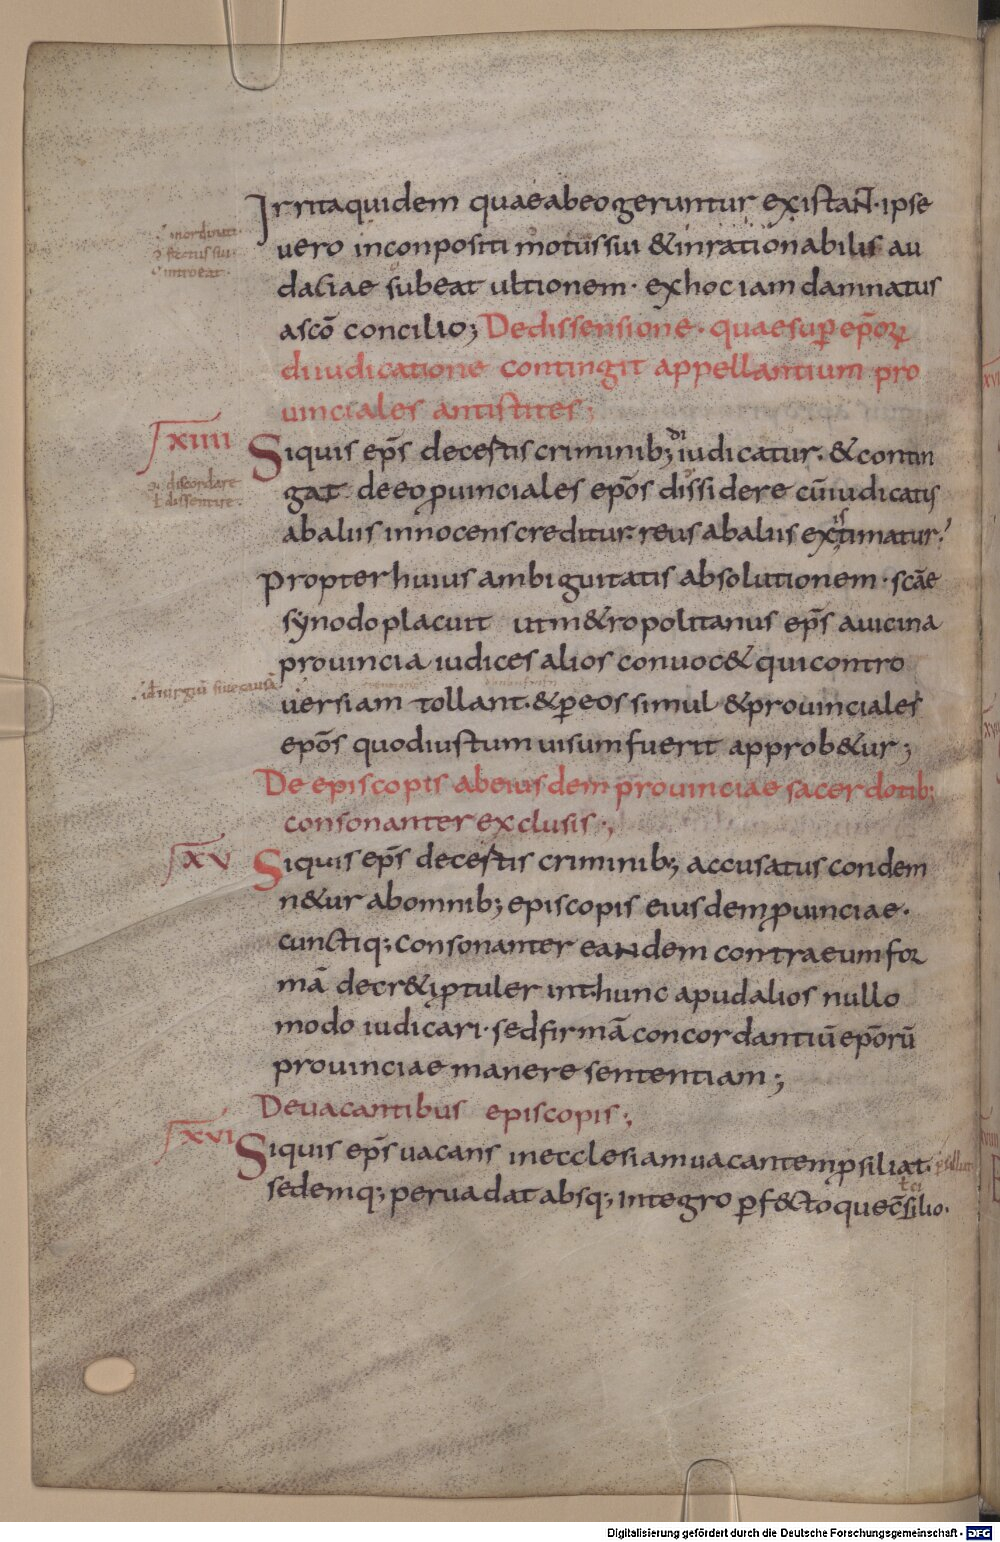 Irrita quidem quae ab eo geruntur existaNt· ipse
uero inconpositi motus sui & inrationabilis au
daciae subeat ultionem· ex hoc iam damnatus
a scō concilio; De dissensione· quae sup epōꝝ
diiudicatione contingit appellantium pro
uinciales antistites;
XIIII
Siquis ep̄s de certis criminib; diiudicatur· & contin
gat de eo ꝓuinciales epōs dissidere cū iudicatis
ab aliis innocens creditur· reus ab aliis extimatur·
discordare
ł dissentire·
Propter huius ambiguitatis absolutionem· scāe
synodo placuit ut m&ropolitanus ep̄s a uicina
prouincia iudices alios conuoc& qui contro
uersiam tollant· & p eos simul & prouinciales
epōs quod iustum uisum fuerit approb&ur;
De episcopis ab eiusdem prouinciae sacerdotib;
consonanter exclusis·,
XV
Siquis ep̄s de certis criminib; accusatus condem
n&ur ab omnib; episcopis eiusdem ꝓuinciae·
cunctiq; consonanter eaNdem contra eum for
mā decr&i ꝑtuler int hunc apud alios nullo
modo iudicari· sed firmā concordantiū epōrū
prouinciae manere sententiam;
De uacantibus episcopis;
XVI
Siquis ep̄s uacans in ecclesiam uacantem ꝓsiliat·
sedemq; peruadat absq; integro pf&cto que c̄silio·
Digitalisierung gefördert durch die Deutsche Forschungsgemeinschaft - DFG